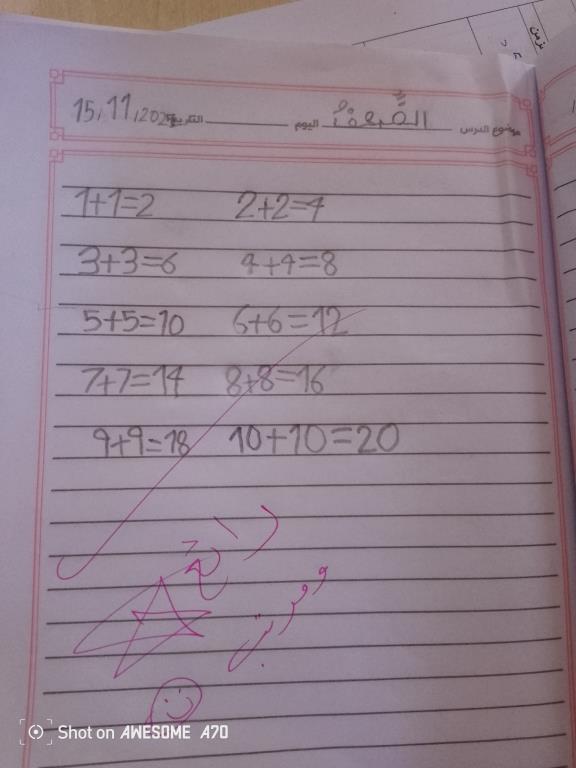 موضوع الدرس الضِّعف اليوم التاريخ 15/11/202
1+1=2 2+2=4
3+3=6 4+4=8
5+5=10 6+6=12
7+7=14 8+8=16
9+9=18 10+10=20
Shot on AWESOME A70